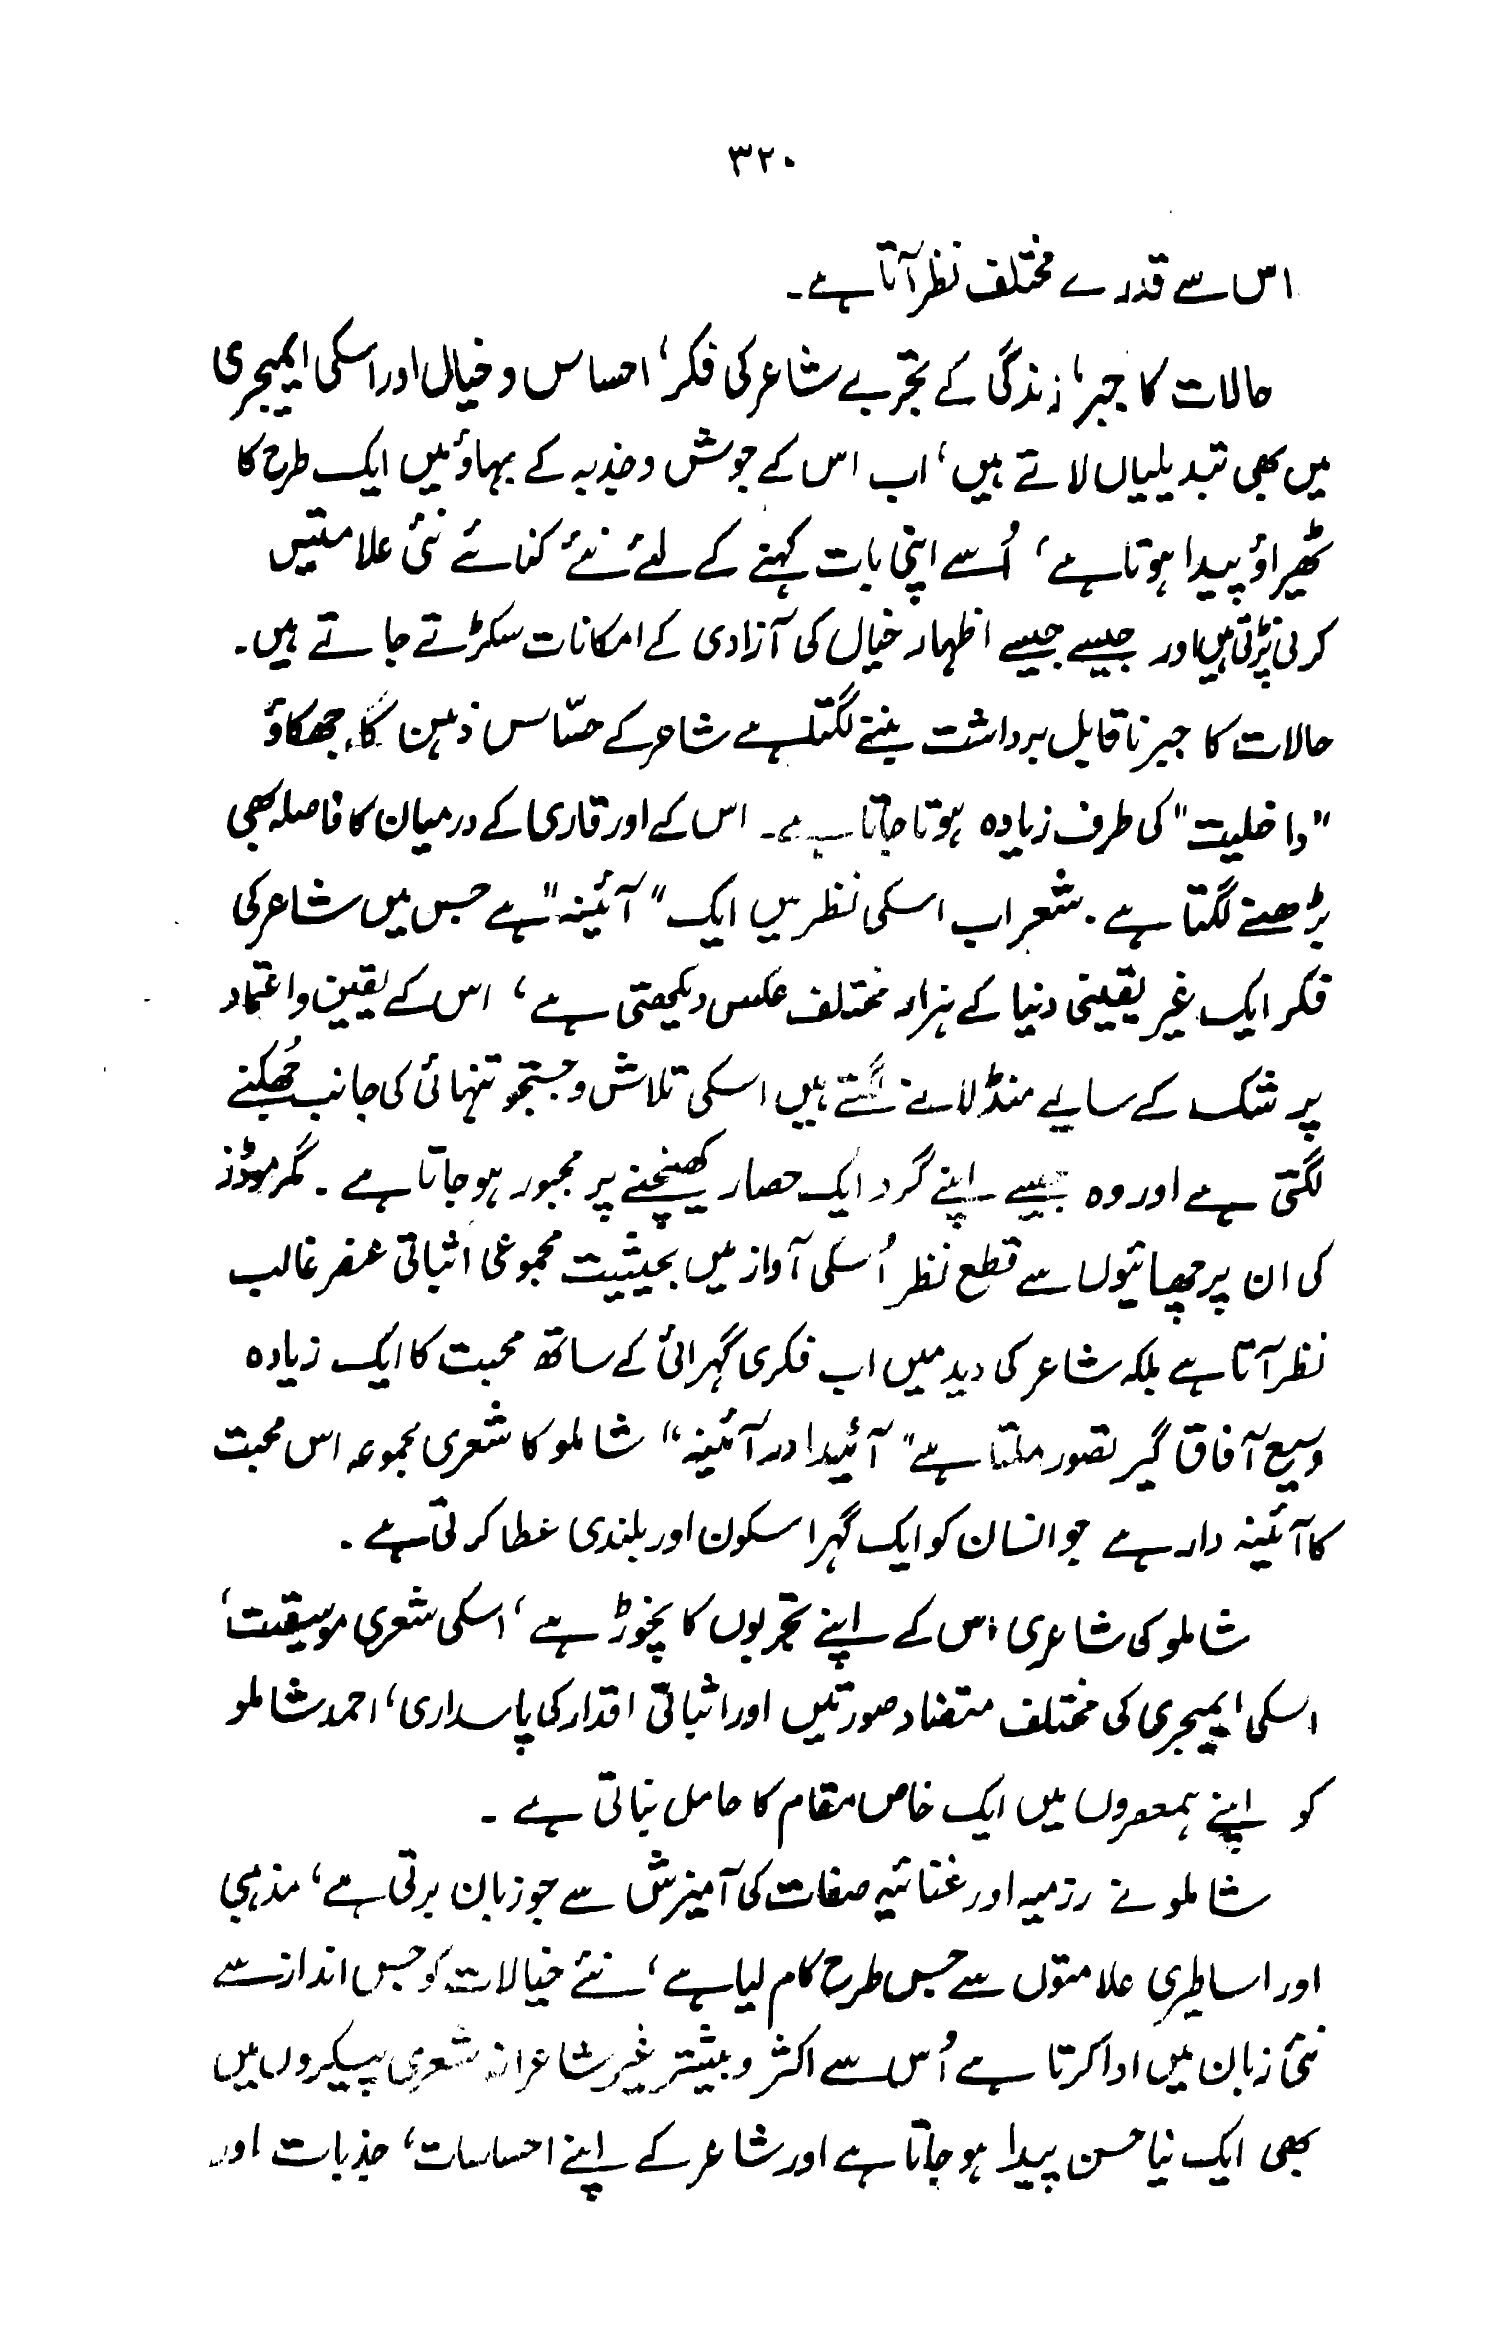 ۳۲۰
اس سے قدرے مختلف نظر آتا ہے۔
حالات کا جبر، زندگی کے تجربے شاعر کی فکر، احساس و خیال اور اسکی ایمیجری
میں بھی تبدیلیاں لاتے ہیں، اب اس کے جوش و جذبہ کے بہاؤ میں ایک طرح کا
ٹھیراؤ پیدا ہوتا ہے، اُسے اپنی بات کہنے کے لئے نئے کنائے نئی علامتیں
کرنی پڑتی ہیں اور جیسے جیسے اظہار خیال کی آزادی کے امکانات سکڑتے جاتے ہیں۔
حالات کا جبر ناقابل برداشت بننے لگتا ہے شاعر کے حسّاس ذہن کا جھکاؤ
"داخلیت" کی طرف زیادہ ہوتا جاتا ہے۔ اس کے اور قاری کے درمیان کا فاصلہ بھی
بڑھنے لگتا ہے۔ شعر اب اسکی نظر میں ایک "آئینہ" ہے جس میں شاعر کی
فکر ایک غیر یقینی دنیا کے ہزار مختلف عکس دیکھتی ہے، اس کے یقین و اعتماد
پر شک کے سایے منڈلانے لگتے ہیں اسکی تلاش و جستجو تنہائی کی جانب جُھکنے
لگتی ہے اور وہ جیسے اپنے گرد ایک حصار کھینچنے پر مجبور ہو جاتا ہے۔ مگر موڈز
کی ان پرچھائیوں سے قطع نظر اُسکی آواز میں بحیثیت مجموعی اثباتی عنصر غالب
نظر آتا ہے بلکہ شاعر کی دید میں اب فکری گہرائی کے ساتھ محبت کا ایک زیادہ
وسیع آفاق گیر تصور ملتا ہے "آئیدا در آئینہ" شاملو کا شعری مجموعہ اس محبت
کا آئینہ دار ہے جو انسان کو ایک گہرا سکون اور بلندی عطا کرتی ہے۔
شاملو کی شاعری اس کے اپنے تجربوں کا نچوڑ ہے، اسکی شعری موسیقیت،
اسکی ایمیجری کی مختلف متضاد صورتیں اور اثباتی اقدار کی پاسداری، احمد شاملو
کو اپنے ہمعصروں میں ایک خاص مقام کا حامل بناتی ہے۔
شاملو نے رزمیہ اور غنائیہ صفات کی آمیزش سے جو زبان برتی ہے، مذہبی
اور اساطیری علامتوں سے جس طرح کام لیا ہے، نئے خیالات کو جس انداز سے
نئی زبان میں ادا کرتا ہے اُس سے اکثر و بیشتر غیر شاعرانہ شعری پیکروں میں
بھی ایک نیا حسن پیدا ہو جاتا ہے اور شاعر کے اپنے احساسات، جذبات اور